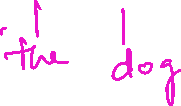 the dog